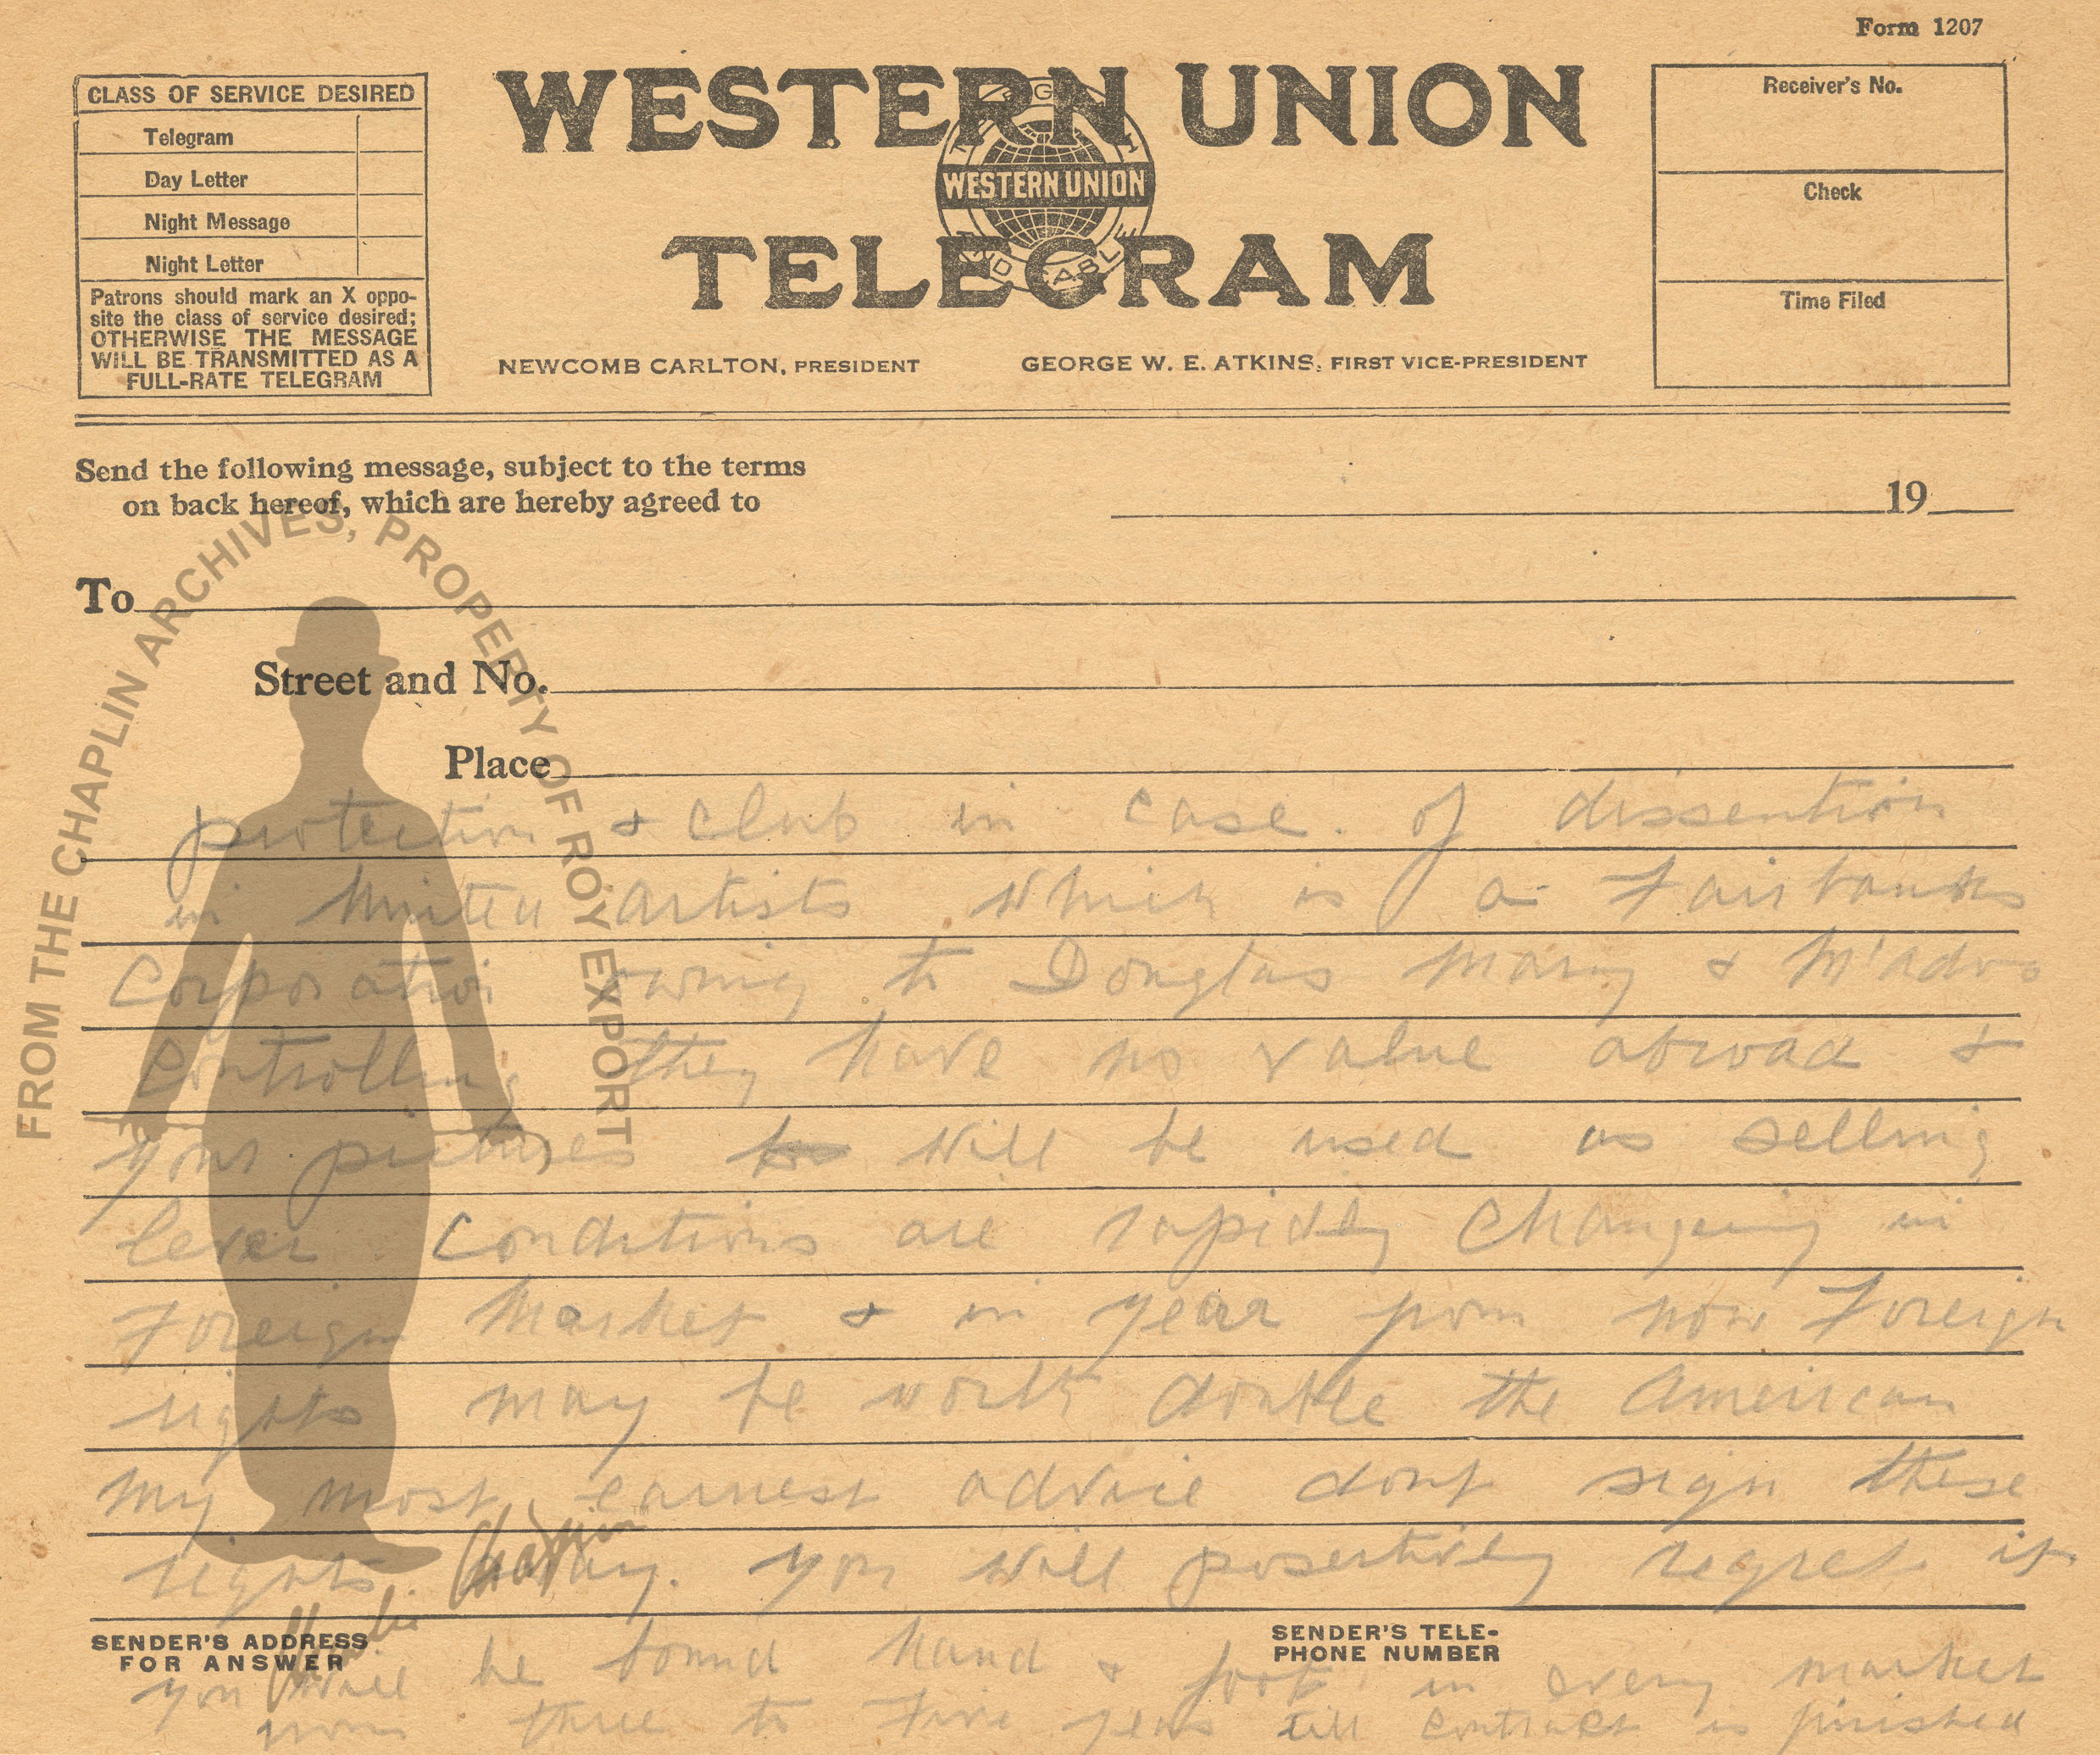 Form 1207
CLASS OF SERVICE DESIRED
Telegram
Day Letter
Night Message
Night Letter
Patrons should mark an X oppo-
site the class of service desired;
OTHERWISE THE MESSAGE
WILL BE TRANSMITTED AS A
FULL-RATE TELEGRAM
WESTERN UNION
WESTERN UNION
TELEGRAM
NEWCOMB CARLTON, PRESIDENT
GEORGE W. E. ATKINS, FIRST VICE-PRESIDENT
Receiver's No.
Check
Time Filed
Send the following message, subject to the terms
on back hereof, which are hereby agreed to
19
To
Street and No.
Place
FROM THE CHAPLIN ARCHIVES, PROPERTY OF ROY EXPORT
protection & club in case. of dissention
in United artists which is a Fairbanks
Corporation owing to Douglas Mary & M'adoo
Controlling they have no value abroad &
your pictures will be used as selling
lever. Conditions are rapidly Changeing in
Foreign Market & in year from now Foreign
rights may be worth double the American
My most earnest advice dont sign these
rights away. you will posertively regret it
SENDER'S ADDRESS
FOR ANSWER
SENDER'S TELE-
PHONE NUMBER
you will be bound hand & foot in every market
from three to Five years till contract is finished
Charlie Chaplin